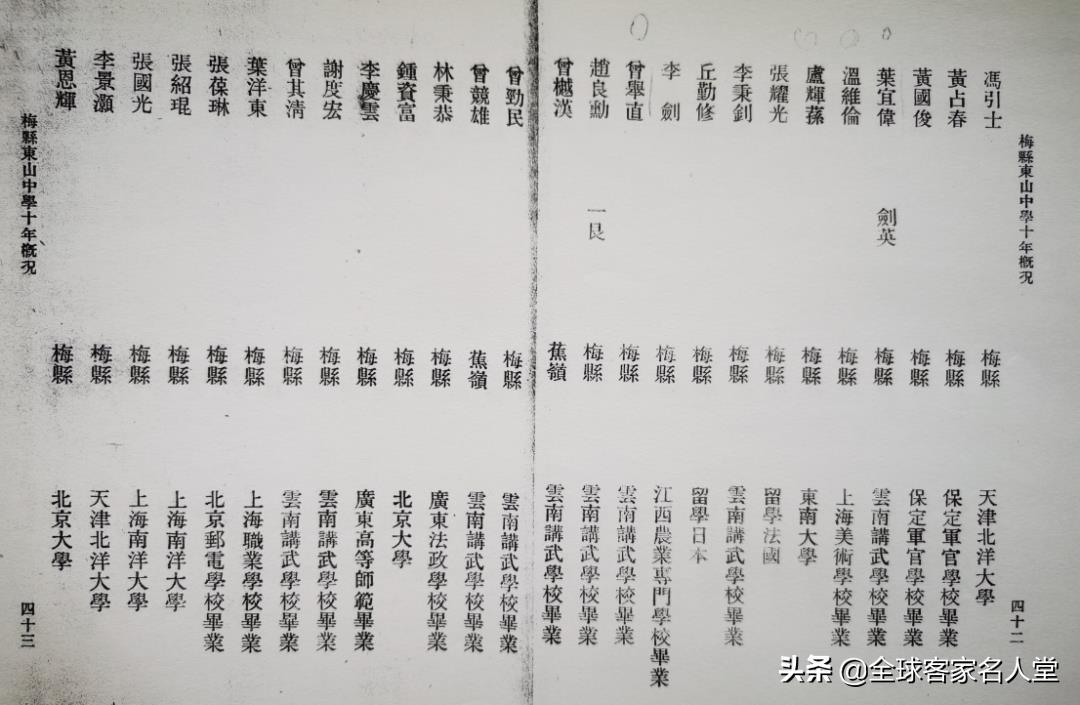 梅縣東山中學十年概况
四十二
馮引士 梅縣 天津北洋大學
黃占春 梅縣 保定軍官學校畢業
黃國俊 梅縣 保定軍官學校畢業
葉宜偉 劍英 梅縣 雲南講武學校畢業
溫維倫 梅縣 上海美術學校畢業
盧輝蓀 梅縣 東南大學
張耀光 梅縣 留學法國
李秉釗 梅縣 雲南講武學校畢業
丘勤修 梅縣 留學日本
李劍 梅縣 江西農業專門學校畢業
曾舉直 梅縣 雲南講武學校畢業
趙良勳 一艮 梅縣 雲南講武學校畢業
曾樾漢 蕉嶺 雲南講武學校畢業
曾勁民 梅縣 雲南講武學校畢業
曾競雄 蕉嶺 雲南講武學校畢業
林秉恭 梅縣 廣東法政學校畢業
鍾資富 梅縣 北京大學
李慶雲 梅縣 廣東高等師範畢業
謝度宏 梅縣 雲南講武學校畢業
曾其淸 梅縣 雲南講武學校畢業
葉洋東 梅縣 上海職業學校畢業
張葆琳 梅縣 北京郵電學校畢業
張紹琨 梅縣 上海南洋大學
張國光 梅縣 上海南洋大學
李景灝 梅縣 天津北洋大學
黃恩輝 梅縣 北京大學
梅縣東山中學十年概况
四十三
头条 @全球客家名人堂